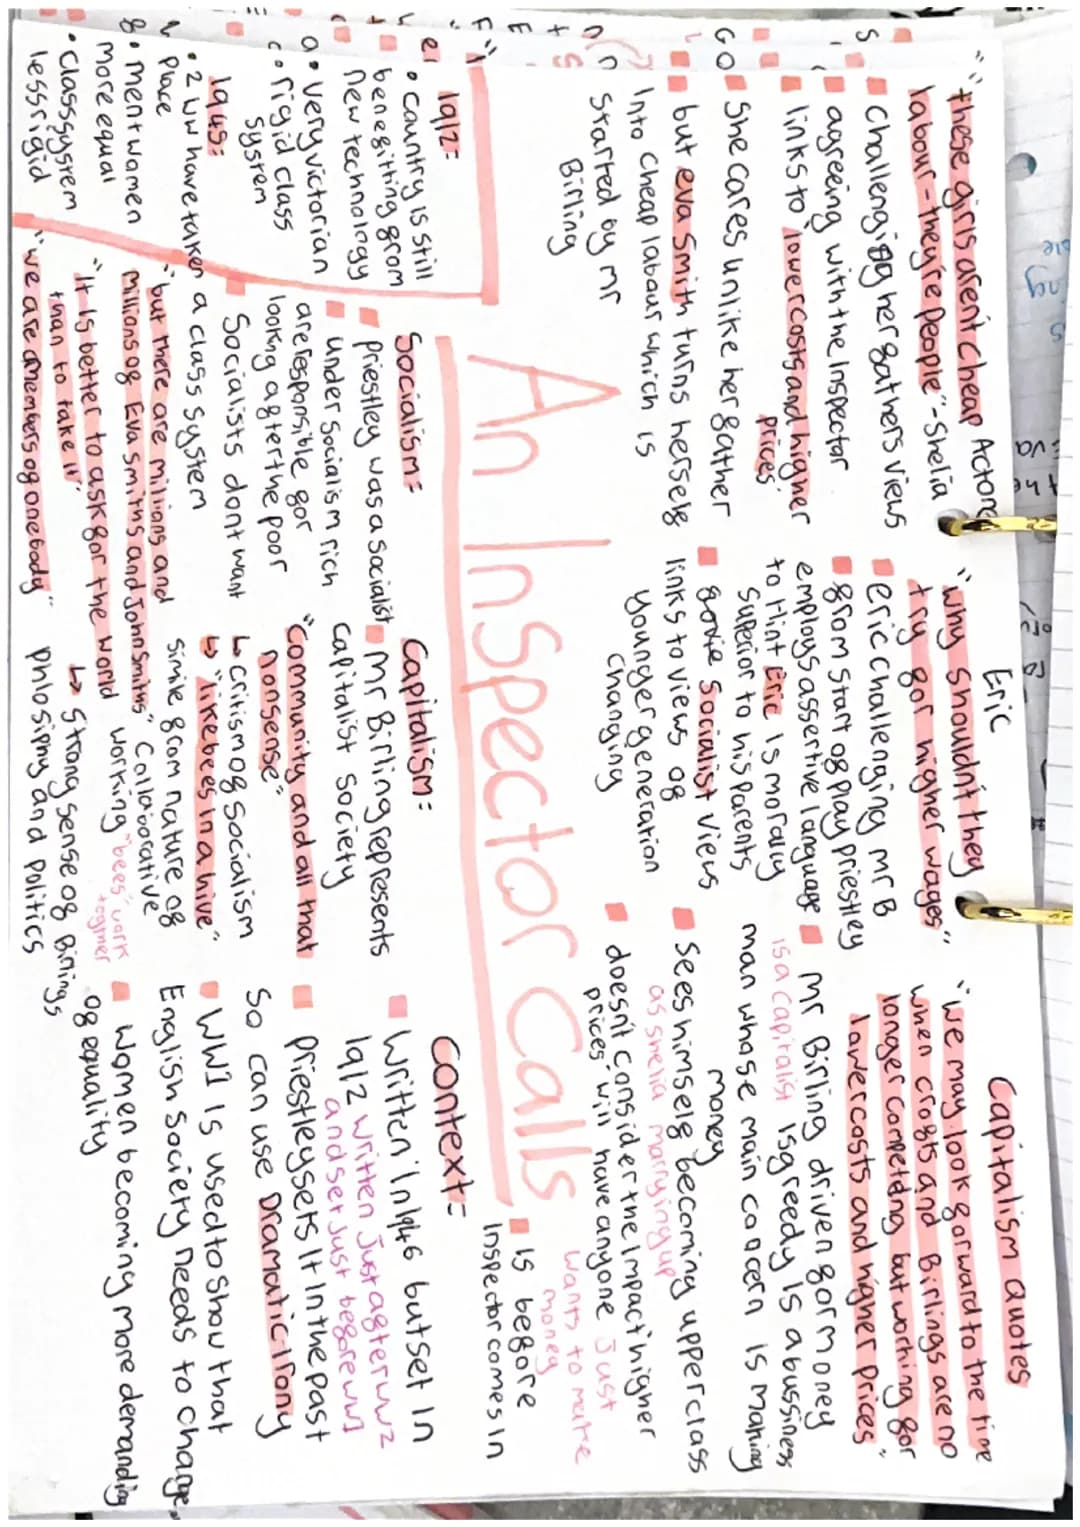 "these girls arent cheap
labour - theyre people" - Shelia
Act one
challenging her gathers views
agreeing with the Inspector
links to lower costs and higher
prices
She cares unlike her gather
but eva Smith turns herself
Into cheap labour which is
started by mr
Birling
Eric
"why shouldn't they
try gor higher wages"
eric challenging mr B
grom start og play priestley
employs assertive language
to Hint Eric Is morally
superior to his parents
Socialist views
links to views og
younger generation
changing
Capitalism quotes
"we may look gorward to the time
when crogts and Birlings are no
longer competing but working gor
lower costs and higher prices"
mr Birling driven gor money
is a capitalist Is greedy Is a bussiness
man whose main concern is making
money
sees himselg becoming upper class
as shelia marrying up
doesn't consider the Impact higher
prices will have anyone Just
wants to make
money
Is begore
Inspector comes In
An Inspector Calls
1912=
• country is still
benegiting grom
new technology
• very victorian
• rigid class
system
1945=
• 2 WW have taken
place
• ment women
more equal
• Class system
less rigid
Socialism=
priestley was a socialist
under Socialism rich
are responsible gor
looking agter the poor
Socialists dont want
a class system
"but there are millions and
millions og Eva smiths and John Smiths"
"It Is better to ask gor the world
than to take it"
"we are members og one body"
Capitalism=
Mr Birling represents
capitalist society
"Community and all that
nonsense"
↳ critism og Socialism
↳ "like bees in a hive"
simile grom nature og
Collaborative
working "bees" work
togther
↳ Strong sense og Birlings
phlosiphy and politics
Context=
written In 1946 but set In
1912 written Just agter ww2
and set just begore ww1
priestley sets It In the past
So can use Dramatic Irony
WW1 Is used to show that
English Society needs to change
women becoming more demanding
og equality